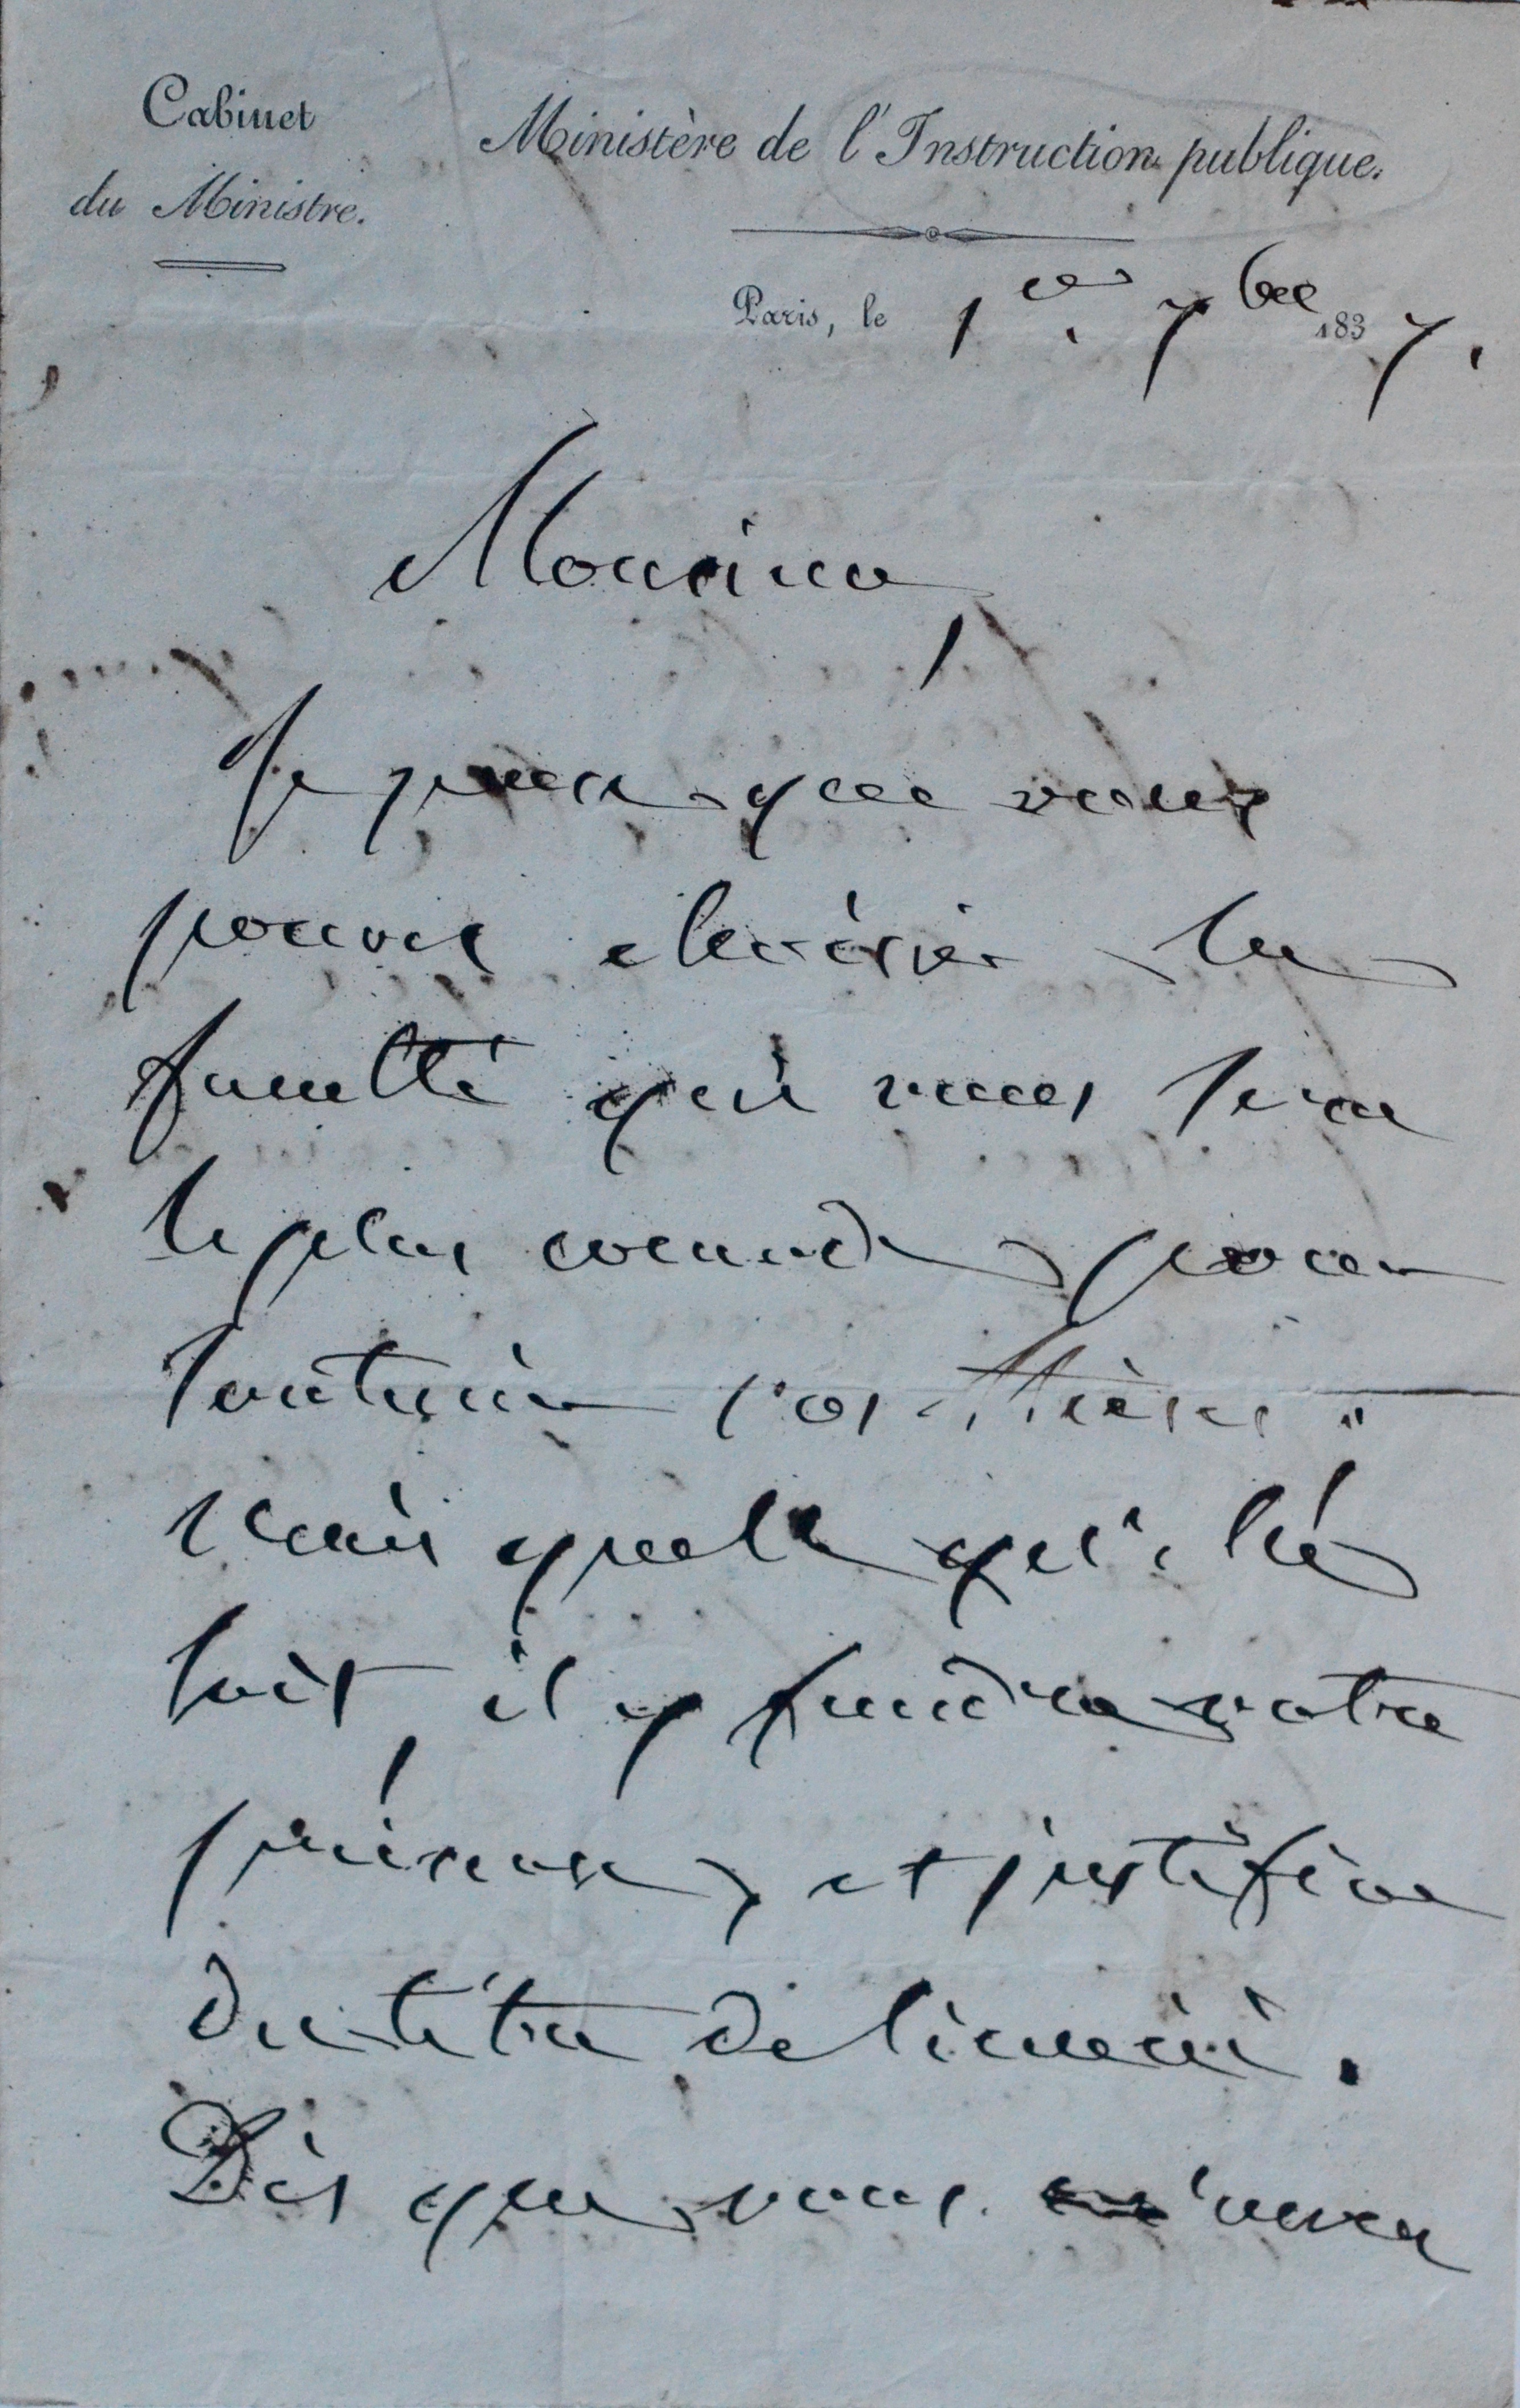 Cabinet
du Ministre.
Ministère de l'Instruction publique.
Paris, le 1er. 7bre 1837.
Monsieur,
Je pense que vous
pouvez choisir la
faculté qui vous sera
le plus commode pour
soutenir vos thèses ;
mais quelle qu'elle
soit, il y faudra votre
présence, et justifier
du titre de licencié.
Dès que vous m'aurez